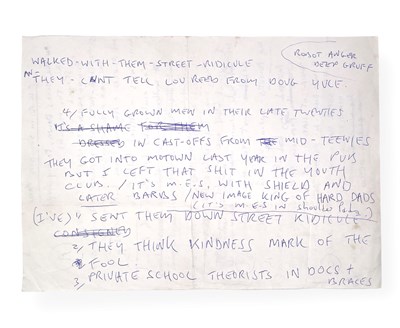 ROBOT ANGAR
DEEP GRUFF
WALKED-WITH-THEM-STREET-RIDICULE
AN- THEY- CANT TELL LOU REED FROM DOUG YULE
4/ FULLY GROWN MEN IN THEIR LATE TWENTIES
IT'S A SHAME FOR THEM
DRESSED IN CAST-OFFS FROM THE MID-TEENIES
THEY GOT INTO MOTOWN LAST YEAR IN THE PUB
BUT I LEFT THAT SHIT IN THE YOUTH
CLUB. / IT'S M.E.S, WITH SHIELD AND
LATER BARBS / NEW IMAGE KING OF HARD DADS
(IT'S M.E.S IN SHOULDER
(I'VE) SENT THEM DOWN STREET RIDICULE
2/ THEY THINK KINDNESS MARK OF THE
FOOL
3/ PRIVATE SCHOOL THEORISTS IN DOCS +
BRACES